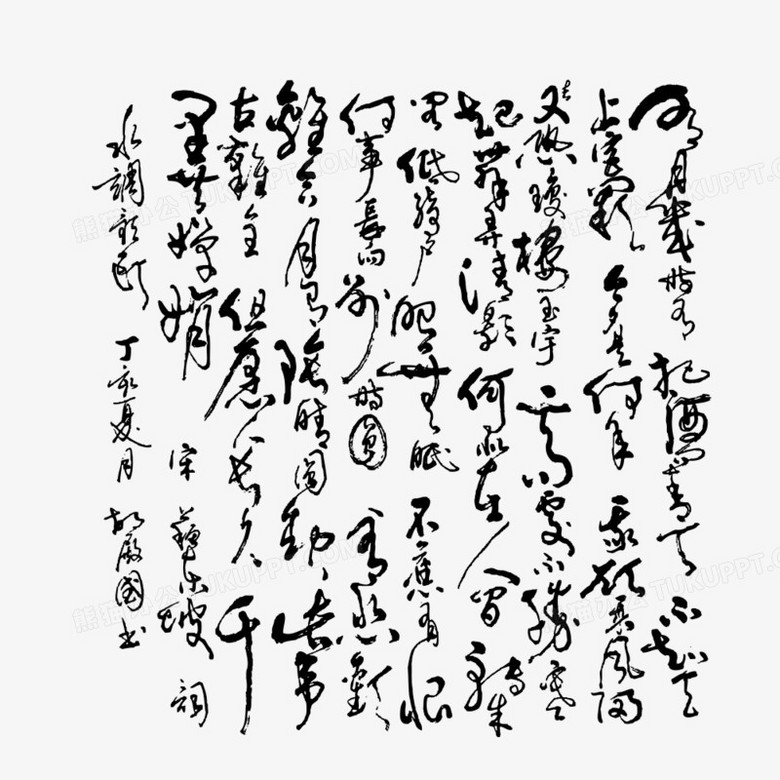 明月幾時有把酒問青天不知天
上宮闕今夕是何年我欲乘風歸
去又恐瓊樓玉宇高處不勝寒
起舞弄清影何似在人間轉朱
閣低綺戶照無眠不應有恨
何事長向別時圓人有悲歡
離合月有陰晴圓缺此事
古難全但願人長久千
里共嬋娟 宋 蘇東坡 詞
水調歌頭 丁亥夏月 國書
熊猫办公 TUKUPPT.COM